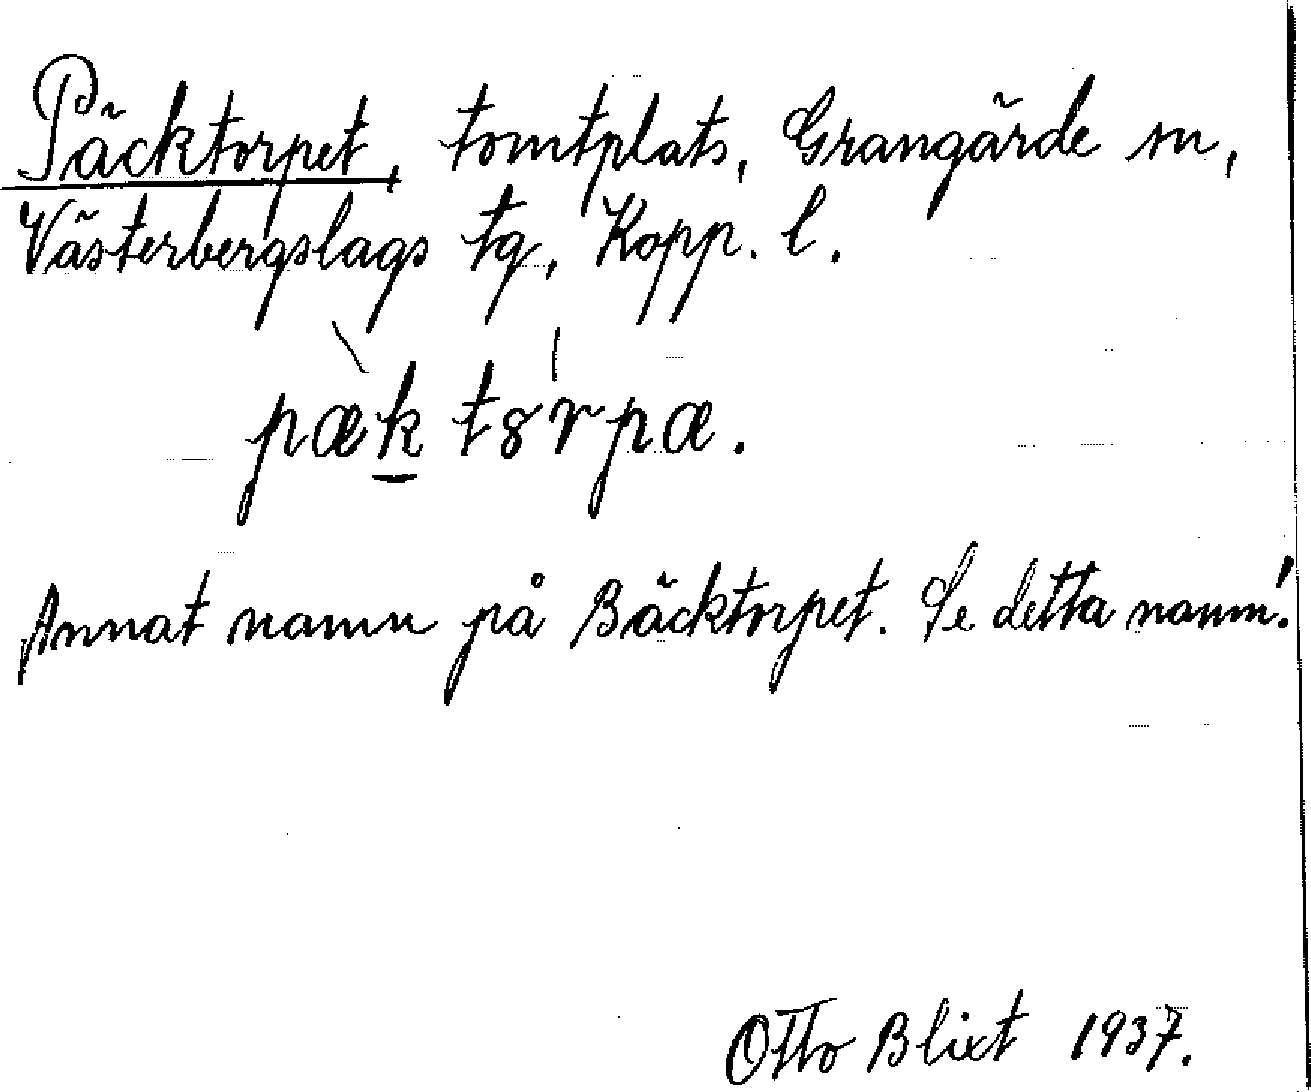 Päcktorpet, tomtplats, Grangärde sn,
Västerbergslags tg, Kopp. l.
pæk tȣrpæ.
Annat namn på Bäcktorpet. Se detta namn!
Otto Blixt 1937.